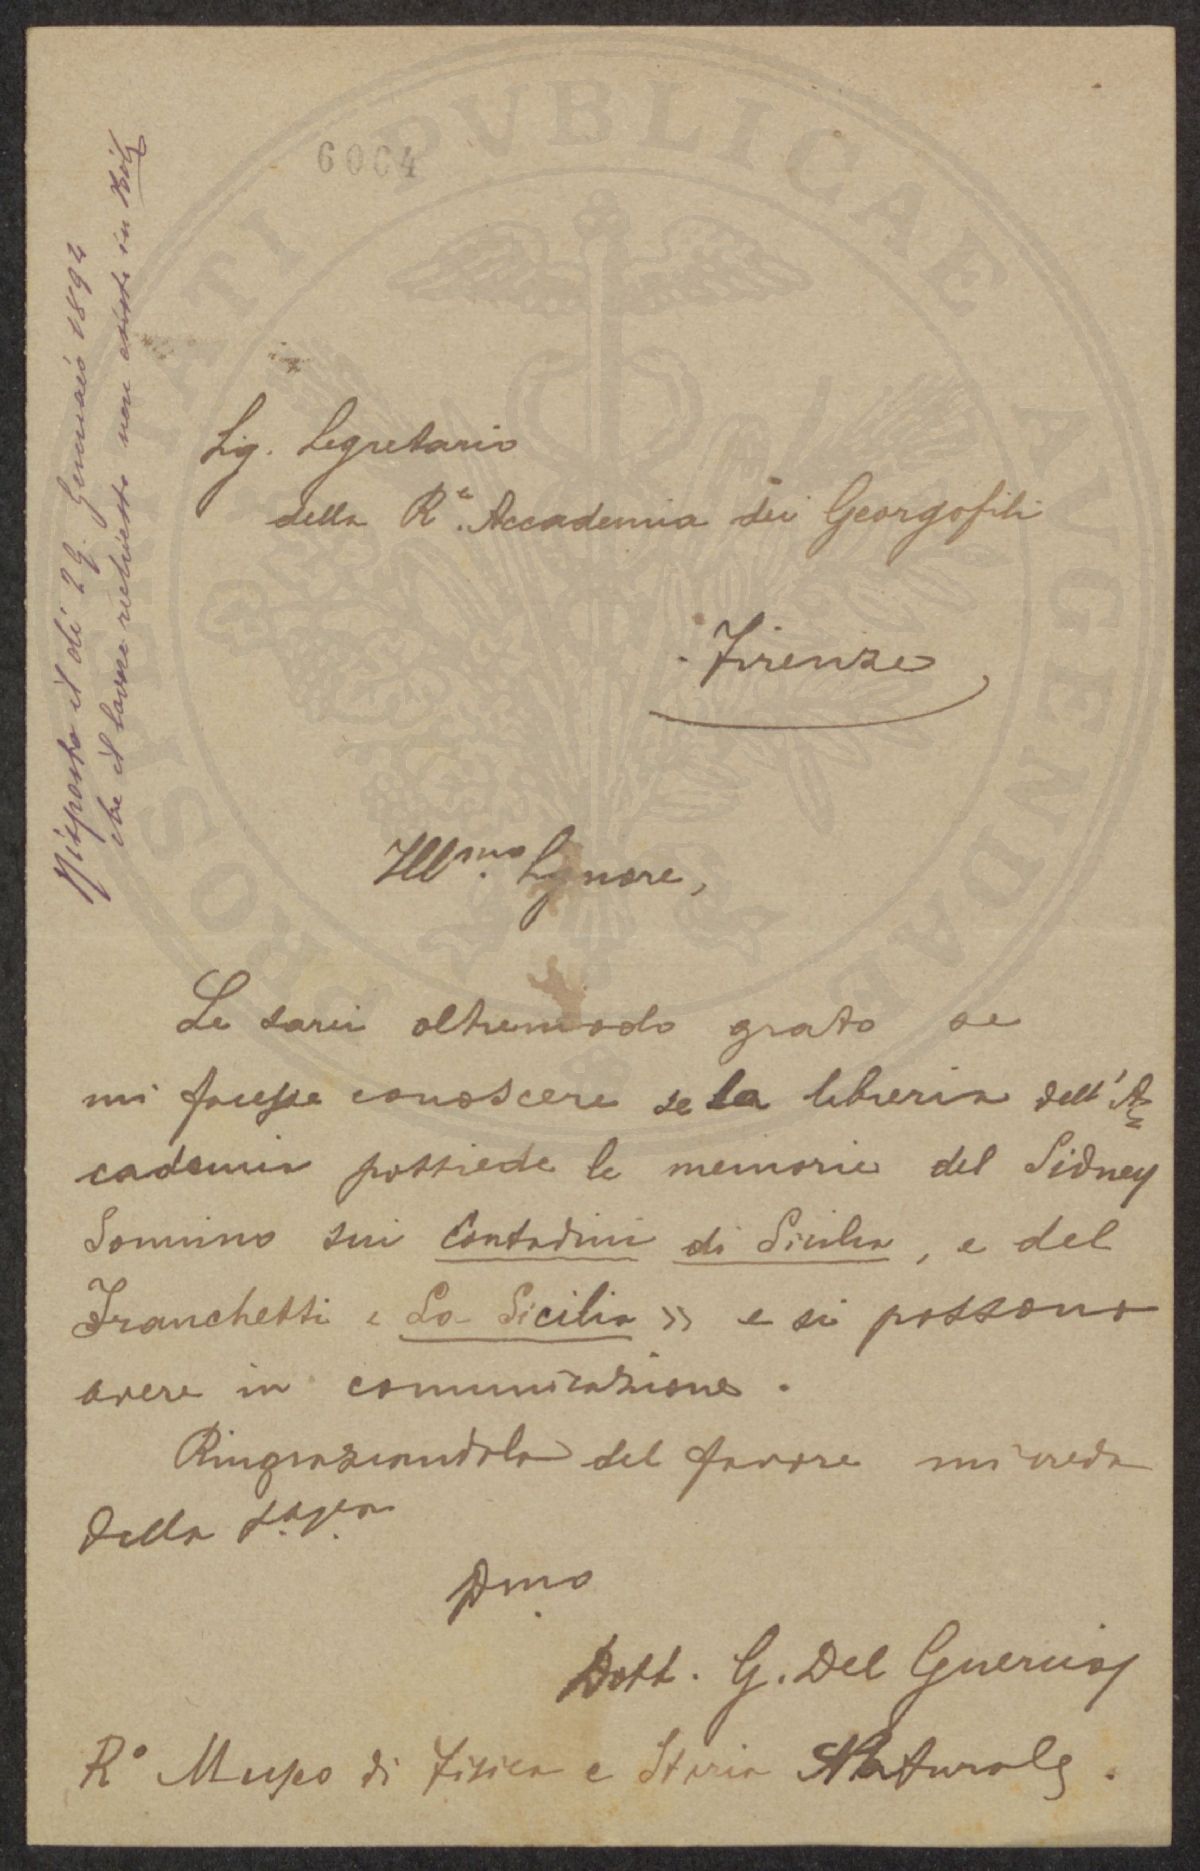 6004
Risposto il dì 29. Gennaio 1892
che il lavoro richiesto non esiste in Bib.
Sig. Segretario
della R.a Accademia dei Georgofili
Firenze
Ill.mo Signore,
Le sarei oltremodo grato se
mi facesse conoscere se la libreria dell'Ac=
cademia possiede le memorie del Sidney
Sonnino sui Contadini di Sicilia, e del
Franchetti « La Sicilia » e si possono
avere in comunicazione.
Ringraziandola del favore mi creda
della
Dmo
Dott. G. Del Guercio
R.o Museo di Fisica e Storia Naturale.
PROSPERITATI PVBLICAE AVGENDAE